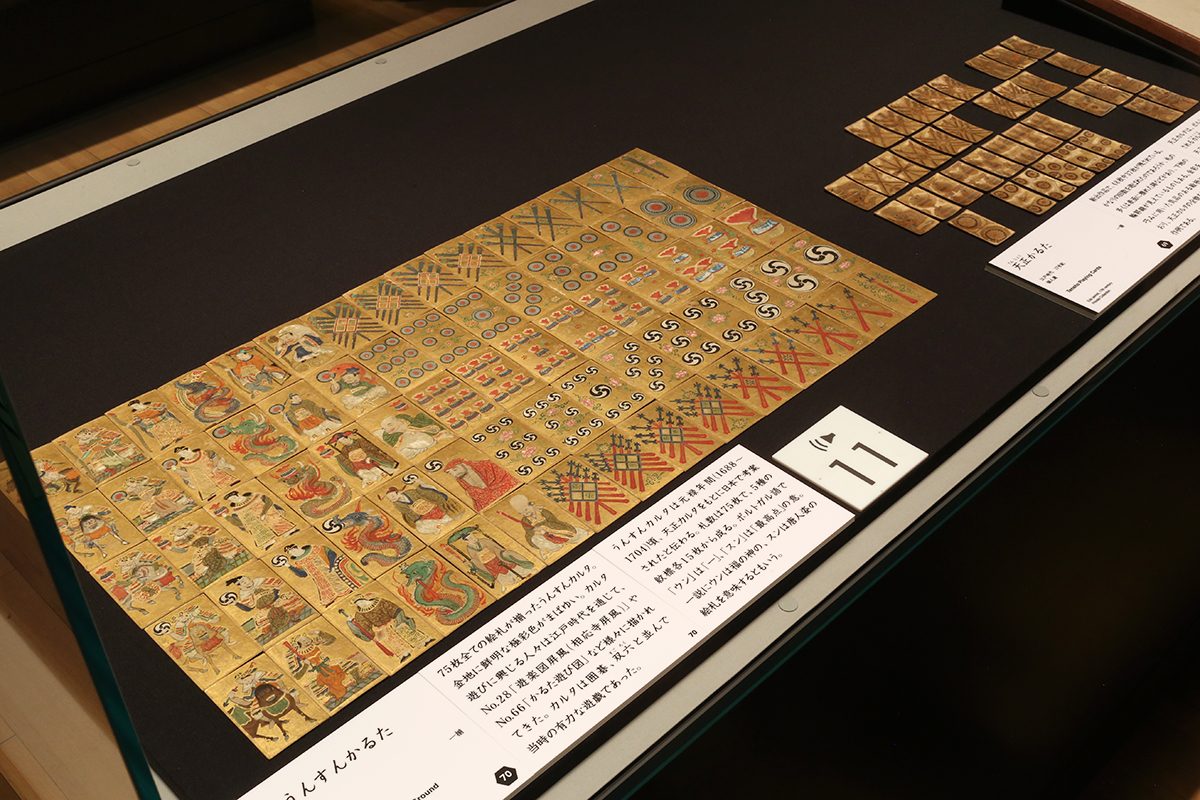 うんすんかるた
一組
70
75枚全ての絵札が揃ったうんすんカルタ。
金地に鮮明な極彩色がまばゆい。カルタ
遊びに興じる人々は江戸時代を通じて、
No.28「遊楽図屏風(相応寺屏風)」や
No.66「かるた遊び図」など様々に描かれ
てきた。カルタは囲碁、双六と並んで
当時の有力な遊戯であった。
70
うんすんカルタは元禄年間(1688–
1704)頃、天正カルタをもとに日本で考案
されたと伝わる。札数は75枚で、5種の
紋標各15枚から成る。ポルトガル語で
「ウン」は「一」、「スン」は「最高点」の意。
一説にウンは福の神の、スンは唐人姿の
絵札を意味するともいう。
11
天正かるた
一組